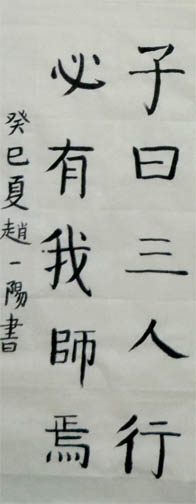 子曰三人行
必有我師焉
癸巳夏趙一陽書